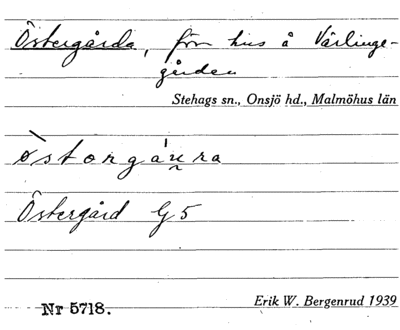 Östergårda, förr hus å Värlinge-
gården
Stehags sn., Onsjö hd., Malmöhus län
østorgáu̯ra
Östergård G 5
Nr 5718.
Erik W. Bergenrud 1939